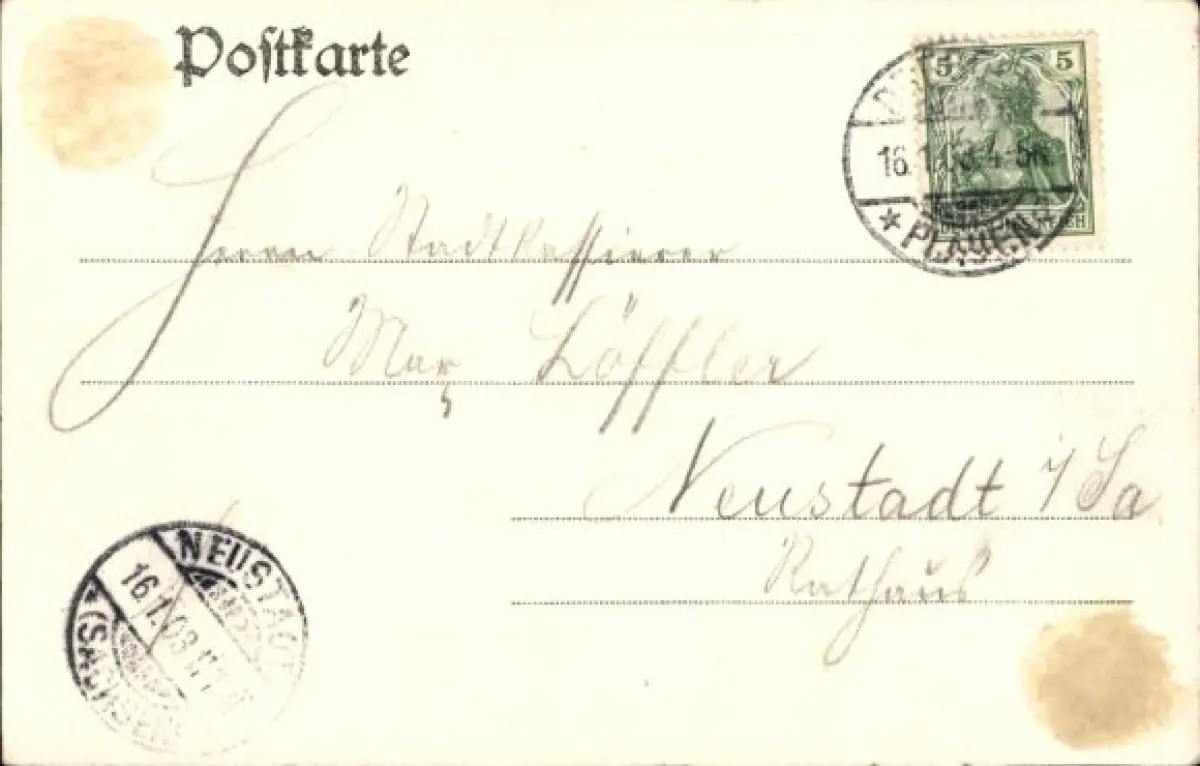 Postkarte
5 5
16.1
* PLAUEN *
Herrn Stadtkassierer
Max Löffler
Neustadt i/Sa
Rathaus
NEUSTADT
16.1.03
(SACHSEN)